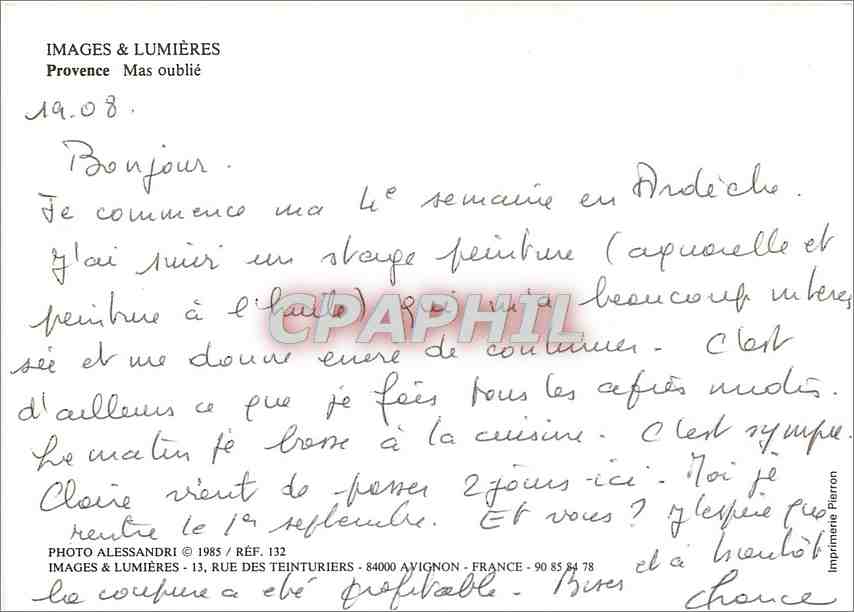 IMAGES & LUMIÈRES
Provence Mas oublié
19.08.
Bonjour.
Je commence ma 4e semaine en Ardèche.
J'ai suivi un stage peinture (aquarelle et
peinture à l'huile) qui m'a beaucoup intéres
sée et me donne envie de continuer. C'est
d'ailleurs ce que je fais tous les après midis.
Le matin je bosse à la cuisine. C'est sympa.
Claire vient de passer 2 jours ici. Moi je
rentre le 1er septembre. Et vous? J'espère que
la coupure a été profitable. Bises et à bientôt
PHOTO ALESSANDRI © 1985 / RÉF. 132
IMAGES & LUMIÈRES - 13, RUE DES TEINTURIERS - 84000 AVIGNON - FRANCE - 90 85 84 78
Imprimerie Pierron
CPAPHIL